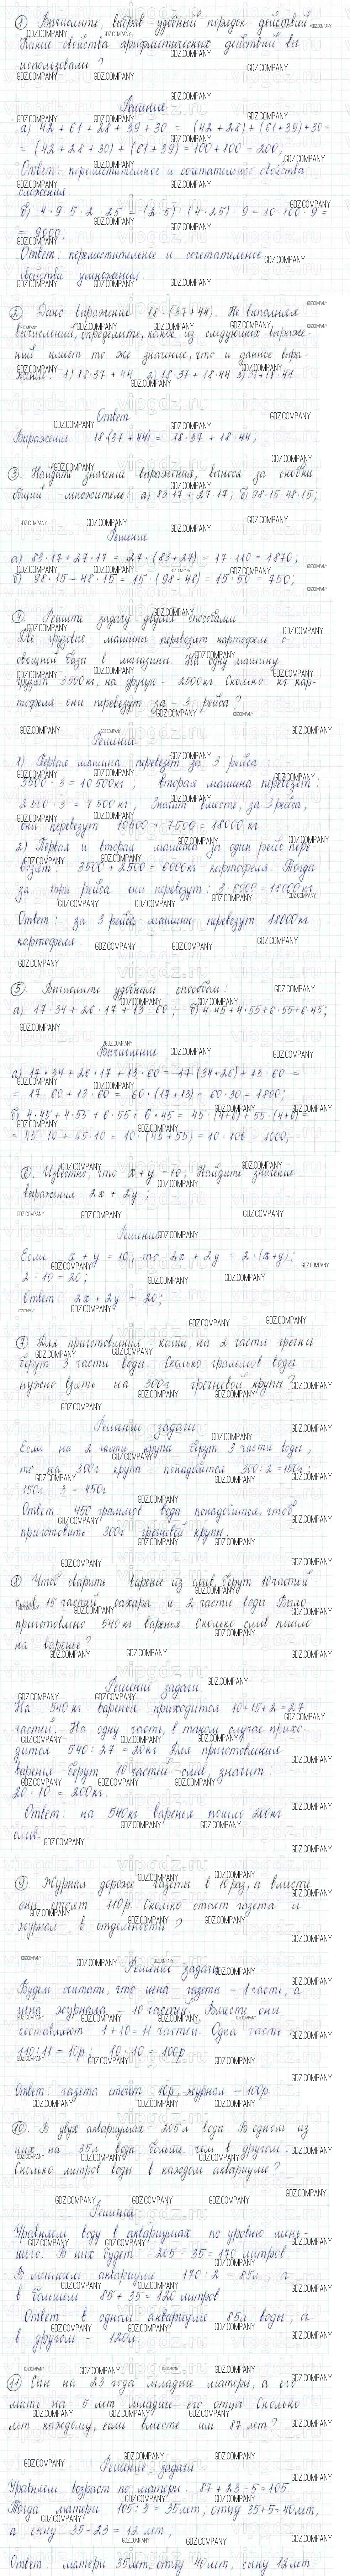 ① Вычислите, выбрав удобный порядок действий.
Какие свойства арифметических действий вы
использовали?
Решение
а) 42 + 61 + 28 + 39 + 30 = (42 + 28) + (61 + 39) + 30 =
= (42 + 28 + 30) + (61 + 39) = 100 + 100 = 200;
Ответ: переместительное и сочетательное свойства
сложения
б) 4 · 9 · 5 · 2 · 25 = (2 · 5) · (4 · 25) · 9 = 10 · 100 · 9 =
= 9000;
Ответ: переместительное и сочетательное
свойства умножения.
② Дано выражение 18 · (37 + 44). Не выполняя
вычислений, определите, какое из следующих выраже-
ний имеет то же значение, что и данное выра-
жение: 1) 18·37 + 44 2) 18·37 + 18·44
Ответ
Выражения 18·(37 + 44) = 18·37 + 18·44;
③ Найдите значение выражения, вынося за скобки
общий множитель: а) 83·17 + 27·17; б) 98·15 - 48·15;
Решение
а) 83·17 + 27·17 = 27·(83 + 27) = 17·110 = 1870;
б) 98·15 - 48·15 = 15 (98 - 48) = 15·50 = 750;
④ Решите задачу двумя способами
Две грузовые машины перевозят картофель с
овощной базы в магазины. На одну машину
грузят 3500 кг, на другую - 2500 кг. Сколько кг кар-
тофеля они перевезут за 3 рейса?
Решение
1) Первая машина перевезет за 3 рейса:
3500 · 3 = 10500 кг, вторая машина перевезет:
2500 · 3 = 7500 кг, Значит вместе, за 3 рейса,
они перевезут 10500 + 7500 = 18000 кг
2) Первая и вторая машины за один рейс пере-
возят: 3500 + 2500 = 6000 кг картофеля. Тогда
за три рейса они перевезут: 3 · 6000 = 18000 кг
Ответ: за 3 рейса машины перевезут 18000 кг
картофеля
⑤ Вычислите удобным способом:
а) 17·34 + 26·17 + 13·60; б) 4·45 + 4·55 + 6·55 + 6·45;
Вычисление
а) 17·34 + 26·17 + 13·60 = 17·(34 + 26) + 13·60 =
= 17·60 + 13·60 = 60·(17 + 13) = 60·30 = 1800;
б) 4·45 + 4·55 + 6·55 + 6·45 = 45·(4+6) + 55·(4+6) =
= 45·10 + 55·10 = 10·(45 + 55) = 10·100 = 1000;
⑥ Известно, что x + y = 10; Найдите значение
выражения 2x + 2y;
Решение
Если x + y = 10, то 2x + 2y = 2·(x + y);
2 · 10 = 20;
Ответ: 2x + 2y = 20;
⑦ Для приготовления каши, на 2 части гречки
берут 3 части воды. Сколько граммов воды
нужно взять на 300 г гречневой крупы?
Решение задачи
Если на 2 части крупы берут 3 части воды,
то на 300 г крупы понадобится 300 : 2 = 150 г;
150 · 3 = 450 г
Ответ: 450 граммов воды понадобится, чтоб
приготовить 300 г гречневой крупы.
⑧ Чтоб сварить варенье из слив, берут 10 частей
слив, 15 частей сахара и 2 части воды. Было
приготовлено 540 кг варенья. Сколько слив пошло
на варенье?
Решение задачи.
На 540 кг варенья приходится 10 + 15 + 2 = 27
частей. На одну часть, в таком случае прихо-
дится 540 : 27 = 20 кг. Для приготовления
варенья берут 10 частей слив, значит:
20 · 10 = 200 кг.
Ответ: на 540 кг варенья пошло 200 кг
слив.
⑨ Журнал дороже газеты в 10 раз, а вместе
они стоят 110 р. Сколько стоят газета и
журнал в отдельности?
Решение задачи
Будем считать, что цена газеты - 1 часть, а
цена журнала - 10 частей. Вместе они
составляют 1 + 10 = 11 частей. Одна часть -
110 : 11 = 10 р; 10 · 10 = 100 р
Ответ: газета стоит 10 р, журнал - 100 р
⑩ В двух аквариумах 205 л воды. В одном из
них на 35 л воды больше чем в другом.
Сколько литров воды в каждом аквариуме?
Решение
Уравняем воду в аквариумах по уровню мень-
шего. В них будет 205 - 35 = 170 литров
В меньшем аквариуме 170 : 2 = 85 л, а
в большем 85 + 35 = 120 литров
Ответ в одном аквариуме 85 л воды, а
в другом - 120 л.
⑪ Сын на 23 года младше матери, а его
мать на 5 лет младше его отца. Сколько
лет каждому, если вместе им 87 лет?
Решение задачи
Уравняем возраст по матери: 87 + 23 - 5 = 105.
Тогда матери 105 : 3 = 35 лет, отцу 35 + 5 = 40 лет,
а сыну 35 - 23 = 12 лет,
Ответ: матери 35 лет, отцу 40 лет, сыну 12 лет